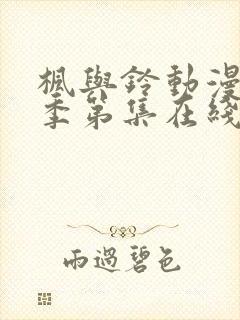 楓與鈴動漫
季第集在綫
雨過碧色